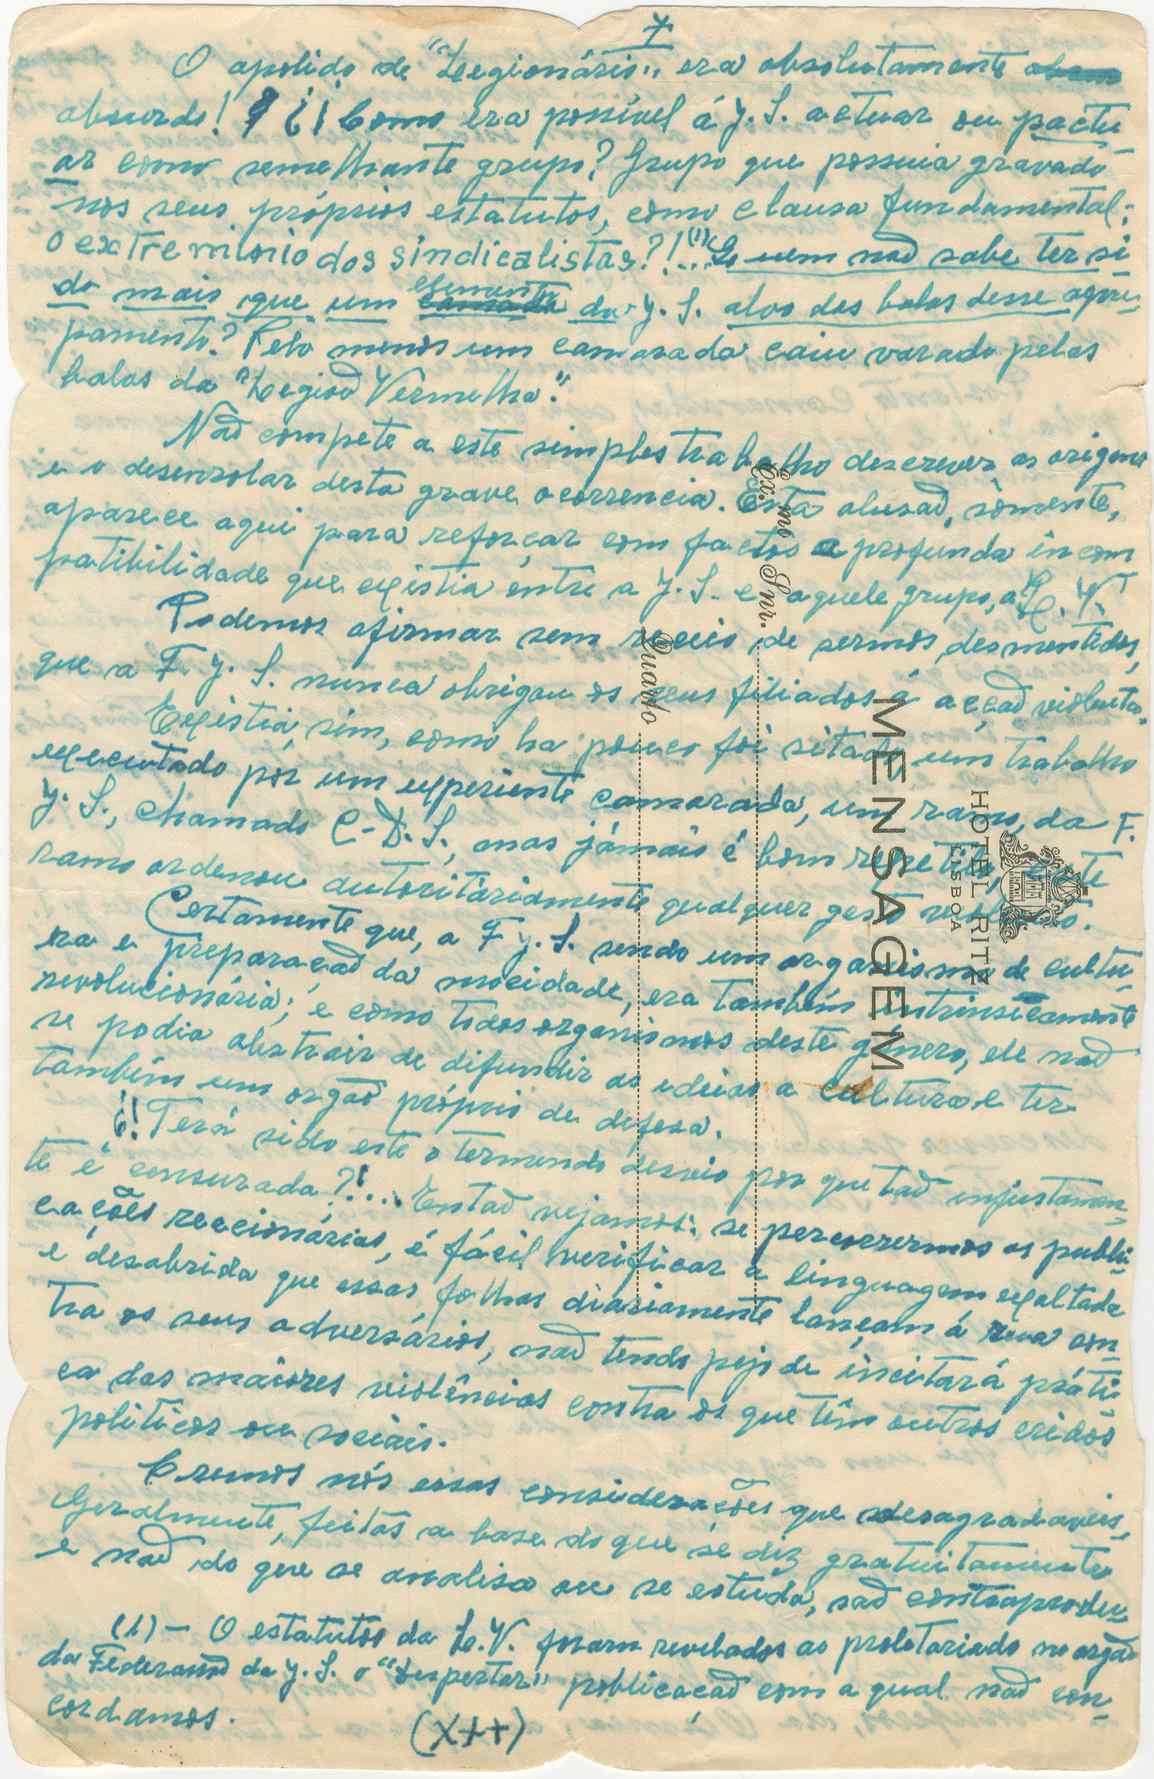 7
O apelido de "Legionário" era absolutamente
absurdo! ¿¡ Como era possível á J. S. actuar ou pactu-
ar como semelhante grupo? Grupo que possuia gravado
nos seus próprios estatutos, como clausa fundamental:
O extreminio dos sindicalistas?!...(1) Se nem não sabe ter si-
do mais que um elemento da J. S. alvo das balas desse agru-
pamento? Pelo menos um camarada caiu varado pelas
balas da "Legião Vermelha".
Não compete a este simples trabalho descrever as origens
e o desenrolar desta grave ocorrencia. Esta alusão, sómente,
aparece aqui para reforçar com factos a profunda incom
patibilidade que existia éntre a J. S. e aquele grupo, a L. V.
Podemos afirmar sem receio de sermos desmentidos,
que a F. J. S. nunca obrigou os seus filiados á acção violenta.
Existia, sim, como ha pouco foi sitado um trabalho
executado por um experiente camarada, um ramo, da F.
J. S., chamado C-D. S., mas jámais é bom repetir
ramo ordenou autoritáriamente qualquer gesto
Certamente que, a F. J. S. sendo um organismo de cultu-
ra e preparação da mocidade, era também intrinsicamente
revolucionária; e como todos organismos deste género, ele não
se podia abstrair de difundir as ideias a cultura e ter
também um orgão próprio de defesa.
¿! Terá sido este o tremendo desvio por que tão injustamen-
te é censurada?!... Então vejamos: se percorrermos as publi-
cações reacionárias, é fácil verificar a linguagem exaltada
e desabrida que essas folhas diáriamente lançam á rua con-
tra os seus adversários, não tendo pejo de incitar á práti-
ca das maiores violências contra os que têm outros crédos
politicos ou sociais.
Cremos nós essas considerações que desagradaveis,
Geralmente, feitas a base do que se diz gratuitamente
e não do que se analisa ou se estuda, são contraprodu-
(1) — O estatutos da L. V. foram revelados ao proletariado no orgão
da Federação da J. S. o "Despertar" publicação com a qual não con-
cordamos.
(X++)
HOTEL RITZ
LISBOA
MENSAGEM
Ex.mo Snr.
Quarto